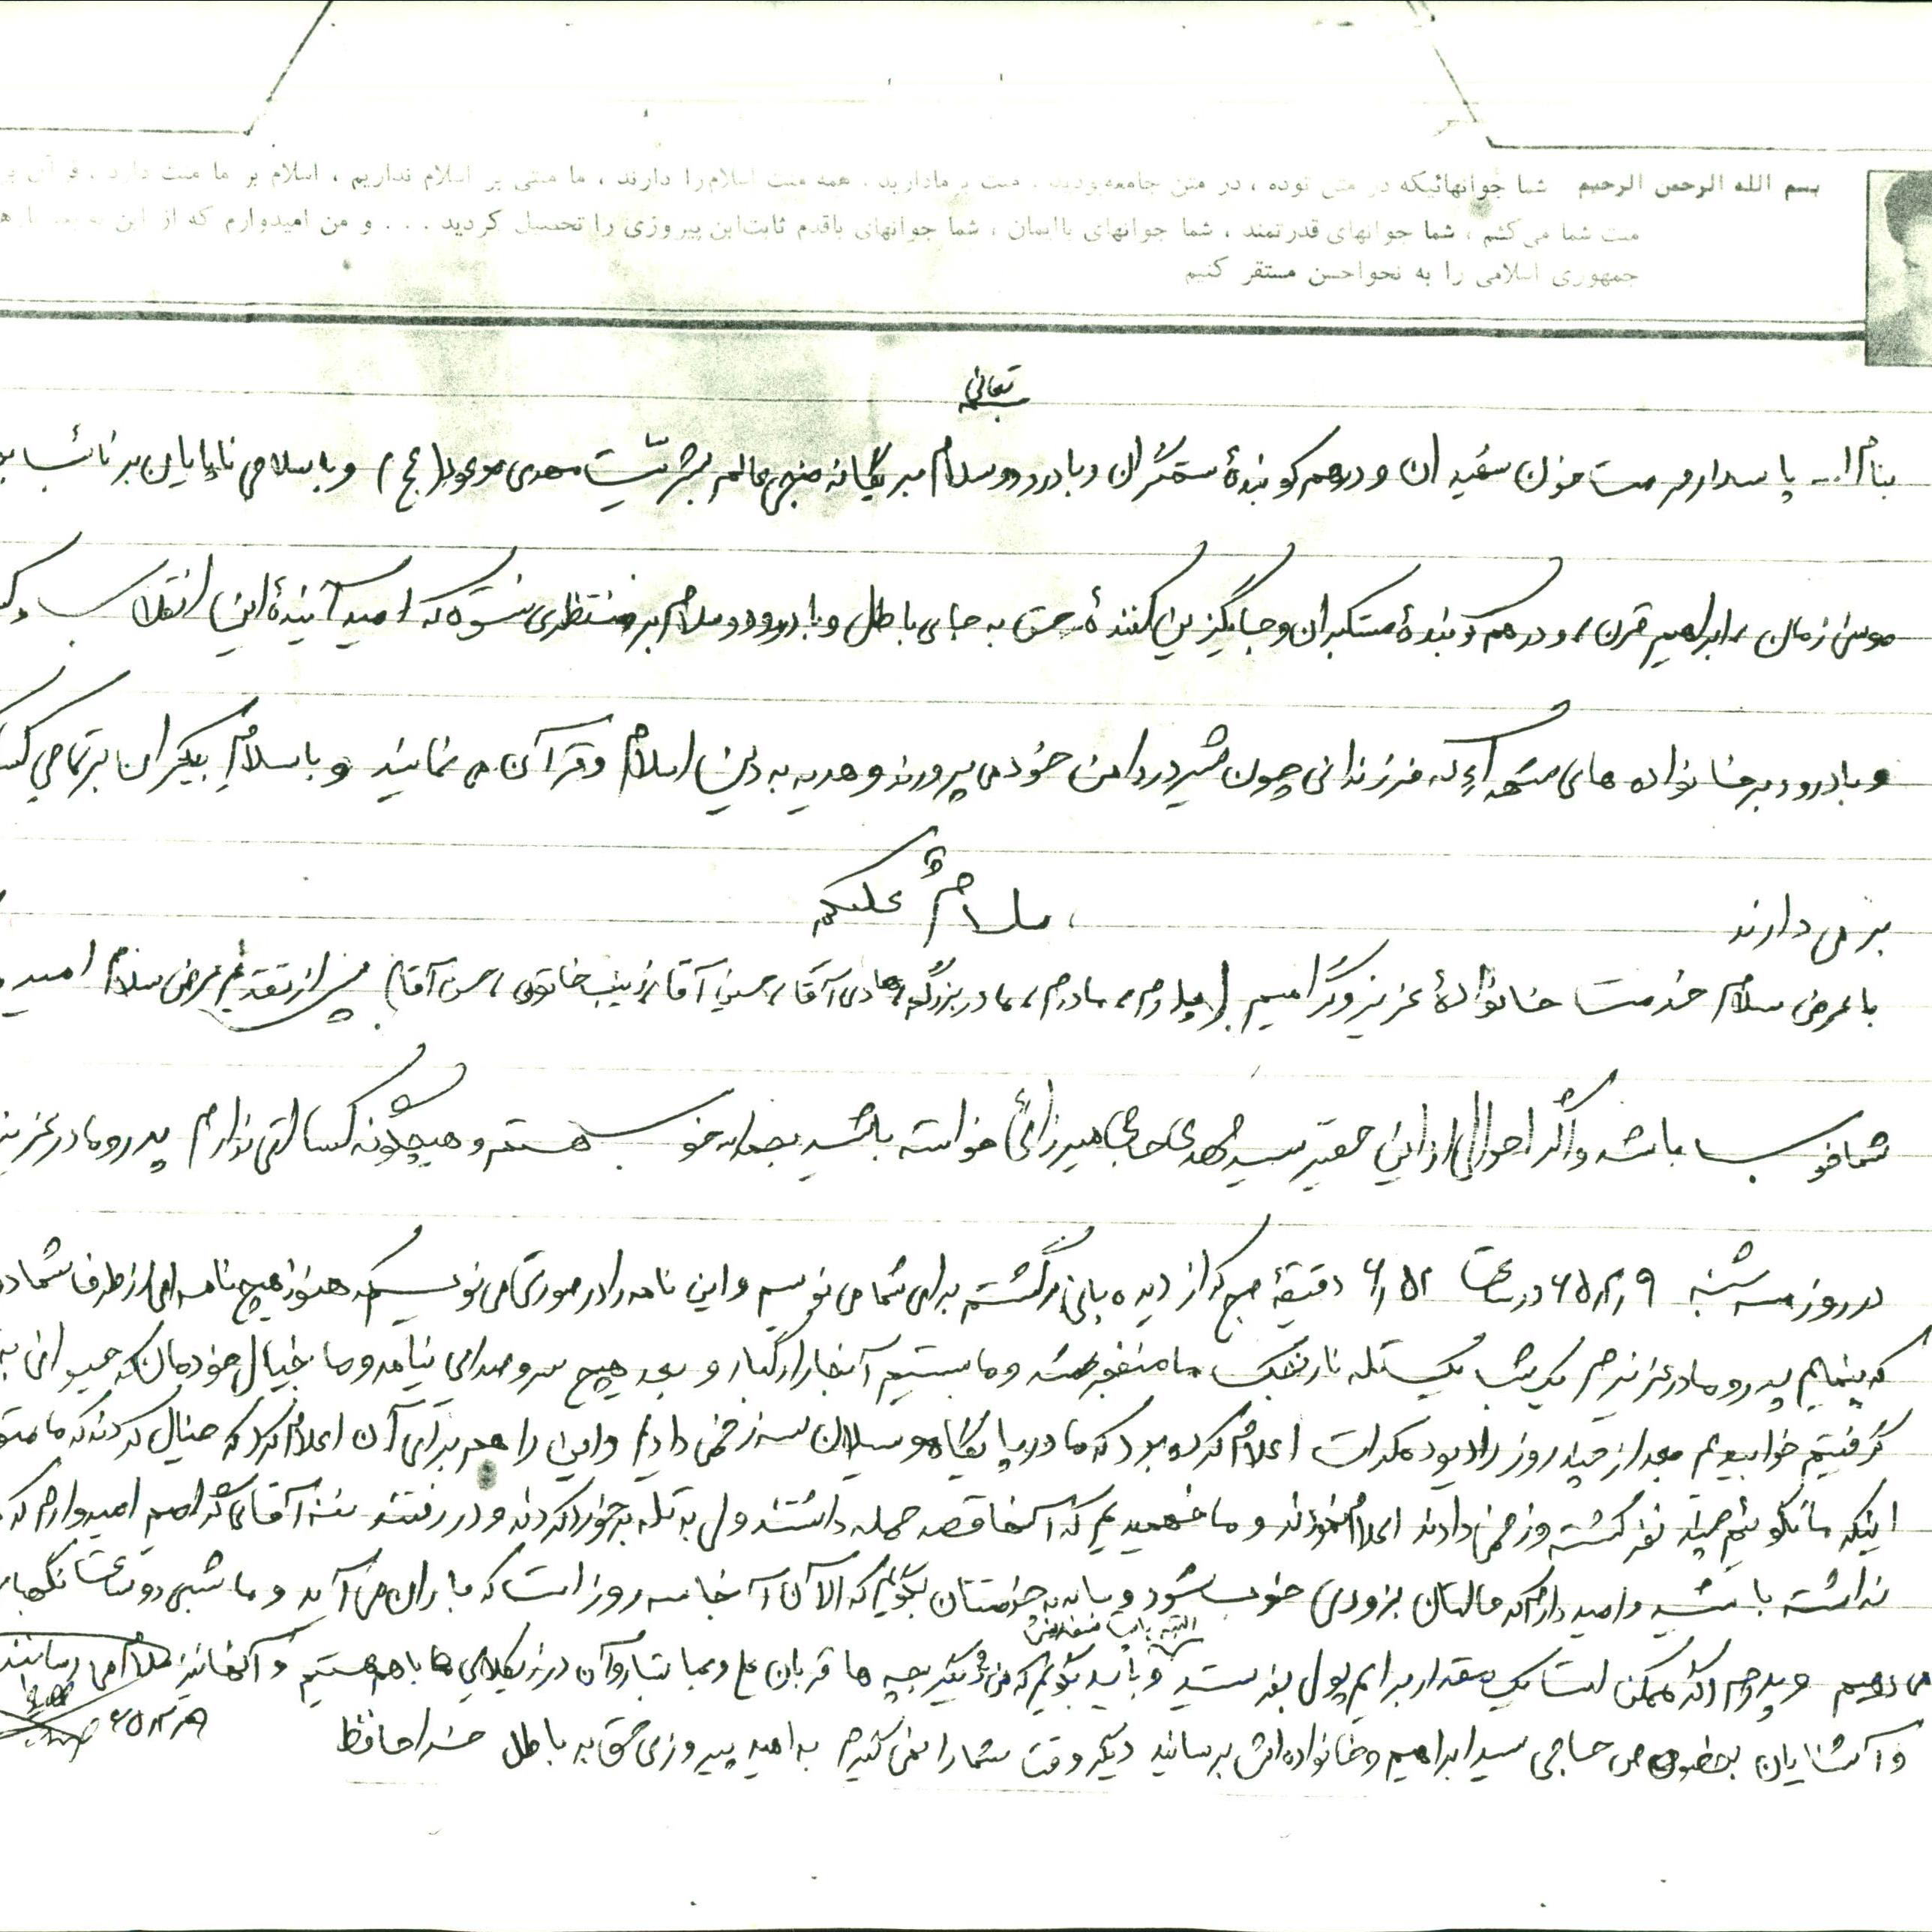 بسم الله الرحمن الرحیم شما جوانهائیکه در متن توده ، در متن جامعه بودید ، منت بر مادارید . همه منت اسلام را دارند ، ما منتی بر اسلام نداریم ، اسلام بر ما منت دارد ،
منت شما می کشم ، شما جوانهای قدرتمند ، شما جوانهای باایمان ، شما جوانهای باقدم ثابت این پیروزی را تحصیل کردید . . . و من امیدوارم که از این به بعد
جمهوری اسلامی را به نحواحسن مستقر کنیم
بسمه تعالی
بنام ا... پاسدار حرمت خون شهیدان و درهم کوبندهٔ ستمگران و با درود و سلام بر یگانه منجی عالم بشریّت مهدی موعود (عج) و با سلامی ناپایان بر نائب
موسی زمان ، ابراهیم قرن ، و درهم کوبندهٔ مستکبران و جایگزین کنندهٔ حق به جای باطل و با درود و سلام بر منتظری نستوه که امید آیندهٔ این انقلاب
و با درود بر خانواده های شهداء که فرزندانی چون شیر در دامن خود می پرورند و هدیه به دین اسلام و قرآن می نمایند و با سلام بیکران بر تمامی
بر می دارند
سلامٌ علیکم
با عرض سلام خدمت خانوادهٔ عزیز و گرامیم (پدرم ، مادرم ، مادر بزرگ ، هادی آقا ، حسین آقا ، زینب خاتون ، حسن آقا) پس از تقدیم عرض سلام امید
شما خوب باشد و اگر احوالی از این حقیر سید مهدی حاجی میرزائی خواسته باشید بحمدالله خوب هستم و هیچگونه کسالتی ندارم پدر و مادر عزیز
در روز سه شنبه ۶۵٫۲٫۹ در ساعت ۶٫۵۲ دقیقهٔ صبح که از دیده بانی برگشتم برای شما می نویسم و این نامه را در صورتی می نویسم که هنوز هیچ نامه ای از طرف شما
که بنمایم پدر و مادر عزیزم یک شب یک تله نارنجک ما منفجر شد و ما بستیم آنجا را رگبار و بعد هیچ سر و صدایی نیامد و ما بخیال خودمان که حیوانی
گرفتیم خوابیدیم بعد از چند روز رادیو دمکرات اعلام کرده بود که ما در پایگاه سیلان سه زخمی دادیم و این را هم برای آن اعلام کرد که خیال کردند که ما
اینکه ما نگوئیم چند نفر کشته و زخمی دادند اعلام نمودند و ما فهمیدیم که آنها قصد حمله داشتند ولی به تله برخورد کردند و در رفتند ننه آقای گرامیم امیدوارم که
نداشته باشید و امید دارم که حالتان بزودی خوب شود و باید به خدمتتان بگویم که الآن آنجا سه روز است که باران می آید و ما شبی دو ساعت
البته با پست سفارشی
می دهیم و پدرم اگر ممکن است یک مقدار برایم پول بفرستید و باید بگویم که من و دیگر بچه ها قربان علی و عباس در نزدیکی ها با هم هستیم و آنها نیز سلام می رسانند
و آشنایان بخصوص حاجی سید ابراهیم و خانواده اش برسانید دیگر وقت شما را نمی گیرم به امید پیروزی حق به باطل خداحافظ
۶۵٫۲٫۹